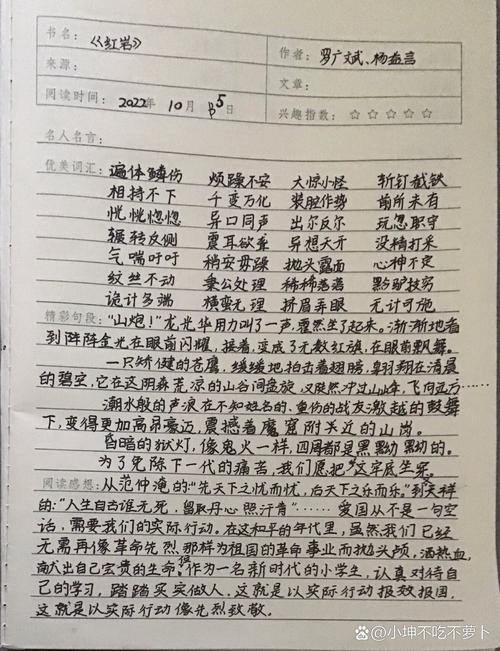 书名：《红岩》
作者：罗广斌、杨益言
来源：
文章：
阅读时间：2022年10月5日
兴趣指数：☆☆☆☆☆
名人名言：
优美词汇：遍体鳞伤 烦躁不安 大惊小怪 斩钉截铁
相持不下 千变万化 装腔作势 前所未有
恍恍惚惚 异口同声 出尔反尔 玩忽职守
辗转反侧 震耳欲聋 异想天开 没精打采
气喘吁吁 稍安毋躁 抛头露面 心神不定
纹丝不动 秉公处理 稀稀落落 黔驴技穷
诡计多端 横蛮无理 挤眉弄眼 无计可施
精彩句段："山炮！"龙光华用力叫了一声，霍然坐了起来。渐渐地看
到阵阵金光在眼前闪耀，接着，变成了无数红旗，在眼前飘舞。
一只矫健的苍鹰，缓缓地拍击着翅膀，翱翔在清晨
的碧空，它在这阴森荒凉的山谷间盘旋，又陡然冲过山火年，飞向远方……
潮水般的声浪在不知姓名的、负伤的战友激越的鼓舞
下，变得更加高昂豪迈，震撼着魔窟附近的山岗。
昏暗的狱灯，像鬼火一样，四周都是黑黝黝的。
为了免除下一代的痛苦，我们愿把这牢底坐穿。
阅读感想：从范仲淹的："先天下之忧而忧，后天下之乐而乐。"到文天祥
的："人生自古谁无死，留取丹心照汗青"……爱国从不是一句空
话，需要我们的实际行动。在这和平的年代里，虽然我们已经
无需再像革命先烈那样为祖国的革命事业而抛头颅，洒热血，
献出自己宝贵的生命。但作为一名新时代的小学生，认真对待自
己的学习，踏踏实实做人，这就是以实际行动报效祖国，
这就是以实际行动像先烈致敬。
@小坤不吃不萝卜